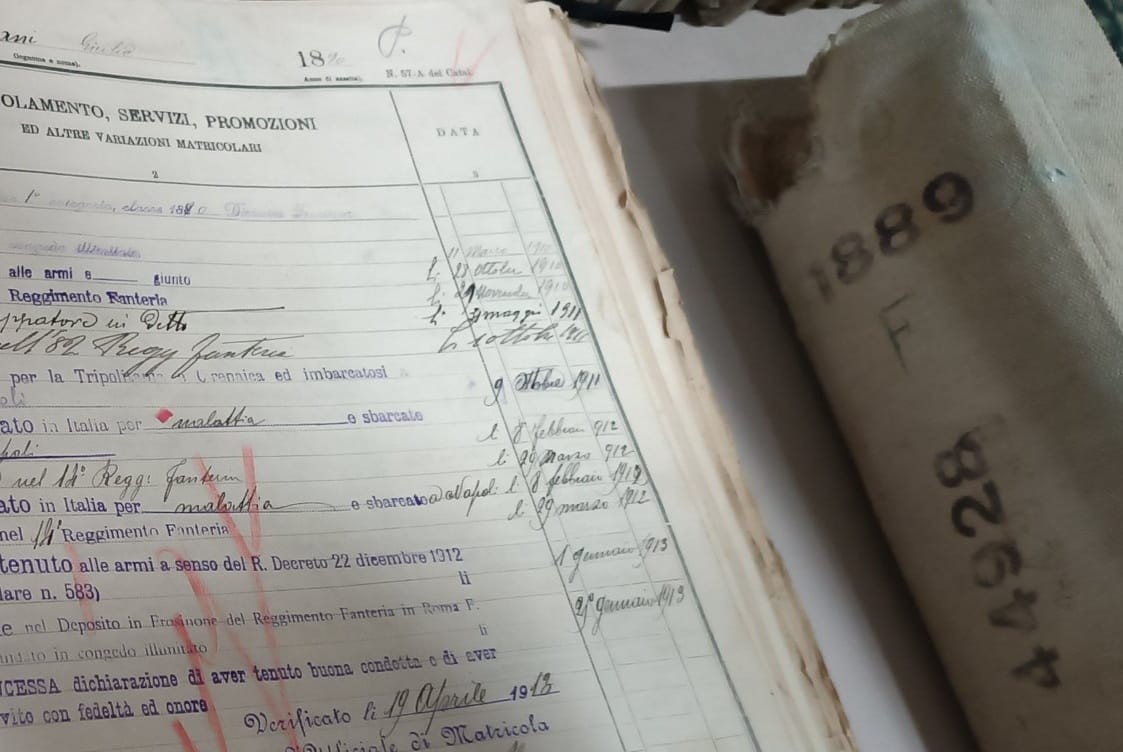 ani Giulio
(Cognome e nome).
18
Anno di nascita).
N. 57-A del Catal.
OLAMENTO, SERVIZI, PROMOZIONI
ED ALTRE VARIAZIONI MATRICOLARI
DATA
2
3
1ª categoria, classe 18
congedo illimitato
11 Marzo 1910
alle armi e giunto
li 28 Ottobre 1910
Reggimento Fanteria
Novembre 1910
in Detto
li 31 maggio 1911
ell'82 Regg Fanteria
ottobre
per la Tripolitania Cirenaica ed imbarcatosi
9 Ottobre 1911
ato in Italia per malattia e sbarcato
li 8 febbraio 912
poli
li 29 marzo 912
nel 14° Regg: Fanteria
ato in Italia per malattia e sbarcato a Napoli li 8 febbraio 1912
nel 14° Reggimento Fanteria
li 29 marzo 1912
tenuto alle armi a senso del R. Decreto 22 dicembre 1912
1 gennaio 1913
lare n. 583)
li
e nel Deposito in Frosinone del Reggimento Fanteria in Roma F.
21 gennaio 1913
andato in congedo illimitato
li
NCESSA dichiarazione di aver tenuto buona condotta e di aver
vito con fedeltà ed onore
Verificato li 19 Aprile 1913
di Matricola
1889
F
44928